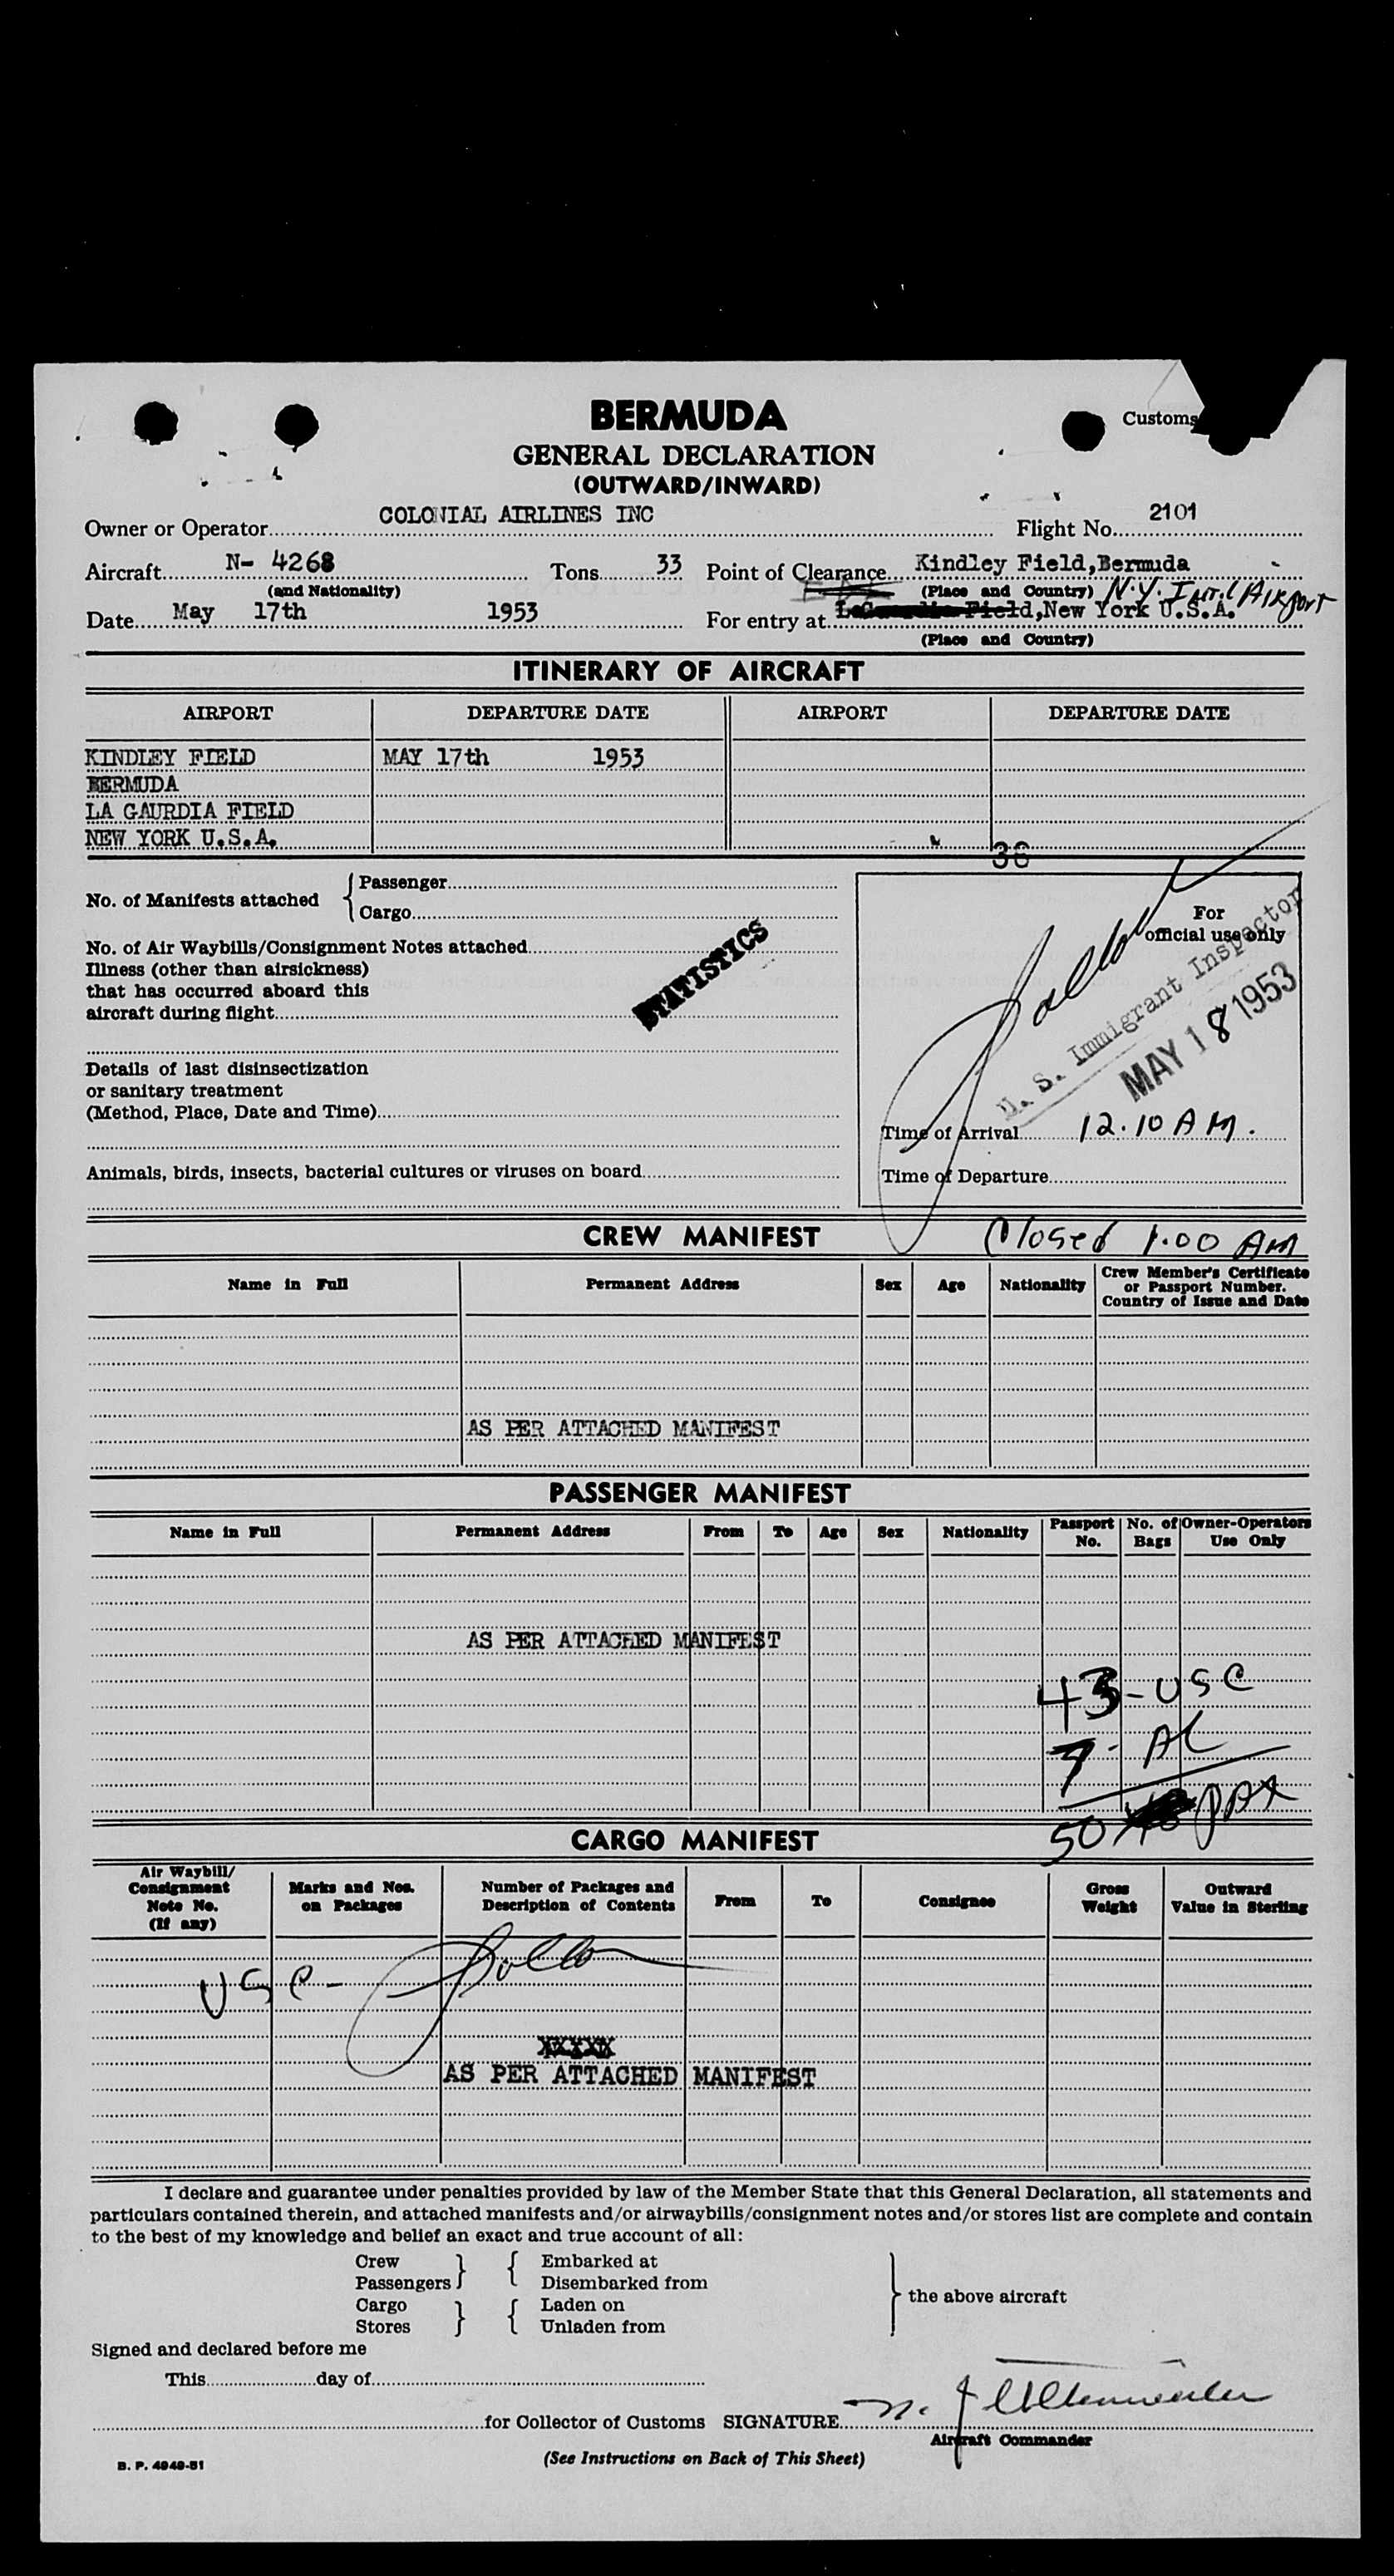 BERMUDA
Customs
GENERAL DECLARATION
(OUTWARD/INWARD)
Owner or Operator COLONIAL AIRLINES INC Flight No. 2101
Aircraft N- 4268 Tons 33 Point of Clearance Kindley Field,Bermuda
(and Nationality) (Place and Country) N.Y. Int.l Airport
Date May 17th 1953 For entry at Field,New York U.S.A.
(Place and Country)
ITINERARY OF AIRCRAFT
AIRPORT DEPARTURE DATE AIRPORT DEPARTURE DATE
KINDLEY FIELD MAY 17th 1953
BERMUDA
LA GAURDIA FIELD
NEW YORK U.S.A.
36
No. of Manifests attached { Passenger
Cargo
For
official use only
No. of Air Waybills/Consignment Notes attached
Illness (other than airsickness)
that has occurred aboard this
aircraft during flight
STATISTICS
U. S. Immigrant Inspector
MAY 18 1953
Details of last disinsectization
or sanitary treatment
(Method, Place, Date and Time)
Time of Arrival 12.10 AM.
Animals, birds, insects, bacterial cultures or viruses on board
Time of Departure
CREW MANIFEST Closed 1.00 AM
Name in Full Permanent Address Sex Age Nationality Crew Member's Certificate
or Passport Number.
Country of Issue and Date
AS PER ATTACHED MANIFEST
PASSENGER MANIFEST
Name in Full Permanent Address From To Age Sex Nationality Passport No. No. of Bags Owner-Operators Use Only
AS PER ATTACHED MANIFEST
43 - USC
7 - AL
50 PAX
CARGO MANIFEST
Air Waybill/
Consignment
Note No.
(If any)
Marks and Nos.
on Packages
Number of Packages and
Description of Contents
From To Consignee
Gross
Weight
Outward
Value in Sterling
USC-
XXXXX
AS PER ATTACHED MANIFEST
I declare and guarantee under penalties provided by law of the Member State that this General Declaration, all statements and
particulars contained therein, and attached manifests and/or airwaybills/consignment notes and/or stores list are complete and contain
to the best of my knowledge and belief an exact and true account of all:
Crew } { Embarked at
Passengers Disembarked from
} the above aircraft
Cargo } { Laden on
Stores Unladen from
Signed and declared before me
This day of
for Collector of Customs SIGNATURE
Aircraft Commander
B. P. 4949-51
(See Instructions on Back of This Sheet)